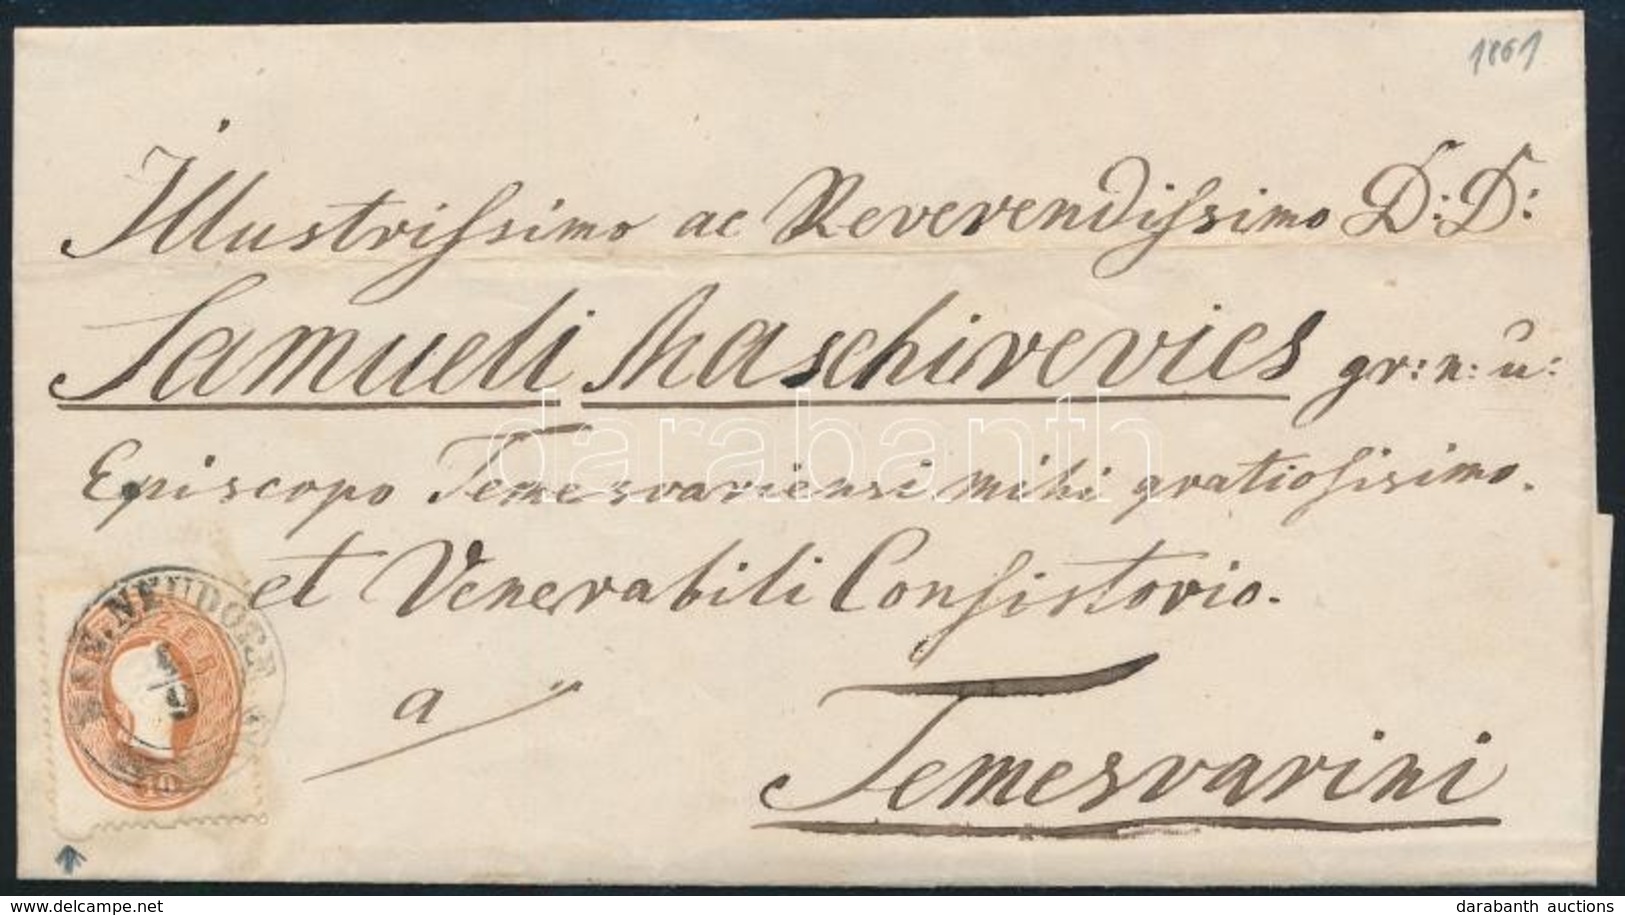 1861
Illustrissimo ac Reverendissimo D: D:
Samueli Maschirevics gr: n: u:
Episcopo Temesvariensi mihi gratiosissimo.
et Venerabili Consistorio.
a
Temesvarini
darabanth
10
www.delcampe.net
darabanth auctions